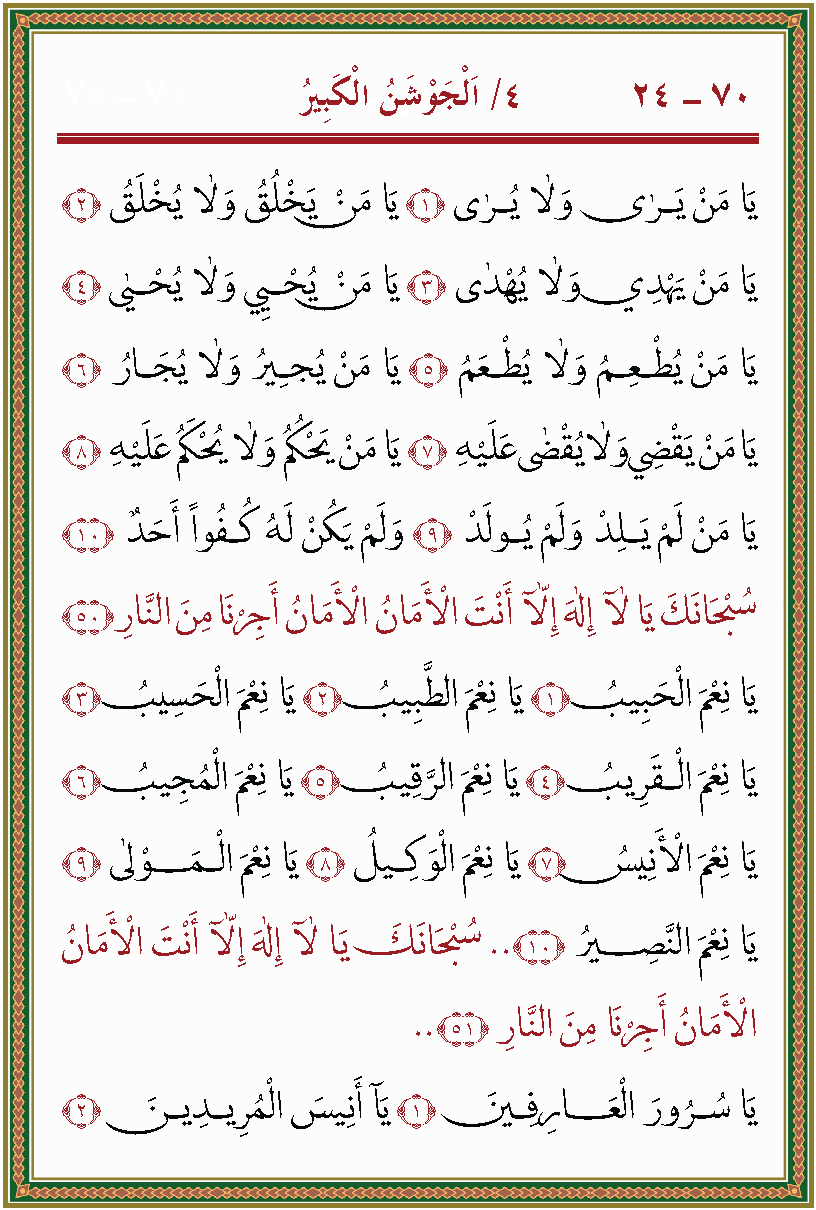 ٧٠ ــ ٢٤ ٤/ اَلْجَوْشَنُ الْكَبِيرُ ٧٠ ــ ٧٠
يَا مَنْ يَـرٰى وَلاٰ يُـرٰى ﴿١﴾ يَا مَنْ يَخْلُقُ وَلاٰ يُخْلَقُ ﴿٢﴾
يَا مَنْ يَهْدِي وَلاٰ يُهْدٰى ﴿٣﴾ يَا مَنْ يُحْـيِي وَلاٰ يُحْـيٰى ﴿٤﴾
يَا مَنْ يُطْـعِـمُ وَلاٰ يُطْـعَمُ ﴿٥﴾ يَا مَنْ يُجـِيرُ وَلاٰ يُجَـارُ ﴿٦﴾
يَا مَنْ يَقْضِي وَلاٰ يُقْضٰى عَلَيْهِ ﴿٧﴾ يَا مَنْ يَحْكُمُ وَلاٰ يُحْكَمُ عَلَيْهِ ﴿٨﴾
يَا مَنْ لَمْ يَـلِـدْ وَلَمْ يُـولَدْ ﴿٩﴾ وَلَمْ يَكُنْ لَهُ كُـفُواً أَحَدٌ ﴿١٠﴾
سُبْحَانَكَ يَا لاٰۤ إِلٰهَ إِلاّٰۤ أَنْتَ الْأَمَانُ الْأَمَانُ أَجِرْنَا مِنَ النَّارِ ﴿٥٠﴾
يَا نِعْمَ الْحَبِيبُ ﴿١﴾ يَا نِعْمَ الطَّبِيبُ ﴿٢﴾ يَا نِعْمَ الْحَسِيبُ ﴿٣﴾
يَا نِعْمَ الْـقَرِيبُ ﴿٤﴾ يَا نِعْمَ الرَّقِيبُ ﴿٥﴾ يَا نِعْمَ الْمُجِيبُ ﴿٦﴾
يَا نِعْمَ الْأَنِيسُ ﴿٧﴾ يَا نِعْمَ الْوَكِـيلُ ﴿٨﴾ يَا نِعْمَ الْـمَـوْلٰى ﴿٩﴾
يَا نِعْمَ النَّصِـيرُ ﴿١٠﴾.. سُبْحَانَكَ يَا لاٰۤ إِلٰهَ إِلاّٰۤ أَنْتَ الْأَمَانُ
الْأَمَانُ أَجِرْنَا مِنَ النَّارِ ﴿٥١﴾..
يَا سُـرُورَ الْعَـارِفِـينَ ﴿١﴾ يَاۤ أَنِيسَ الْمُرِيـدِيـنَ ﴿٢﴾